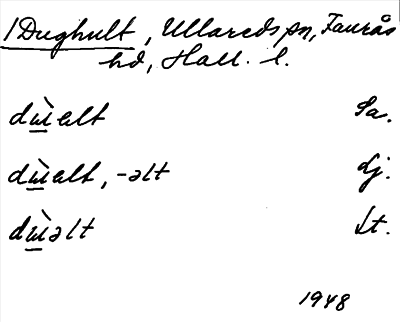 1 Dughult, Ullareds sn, Faurås
hd, Hall. l.
dɯ̀ɐlt Sa.
dɯ̀ɐlt, -əlt Lj.
dɯ̀əlt Lt.
1948